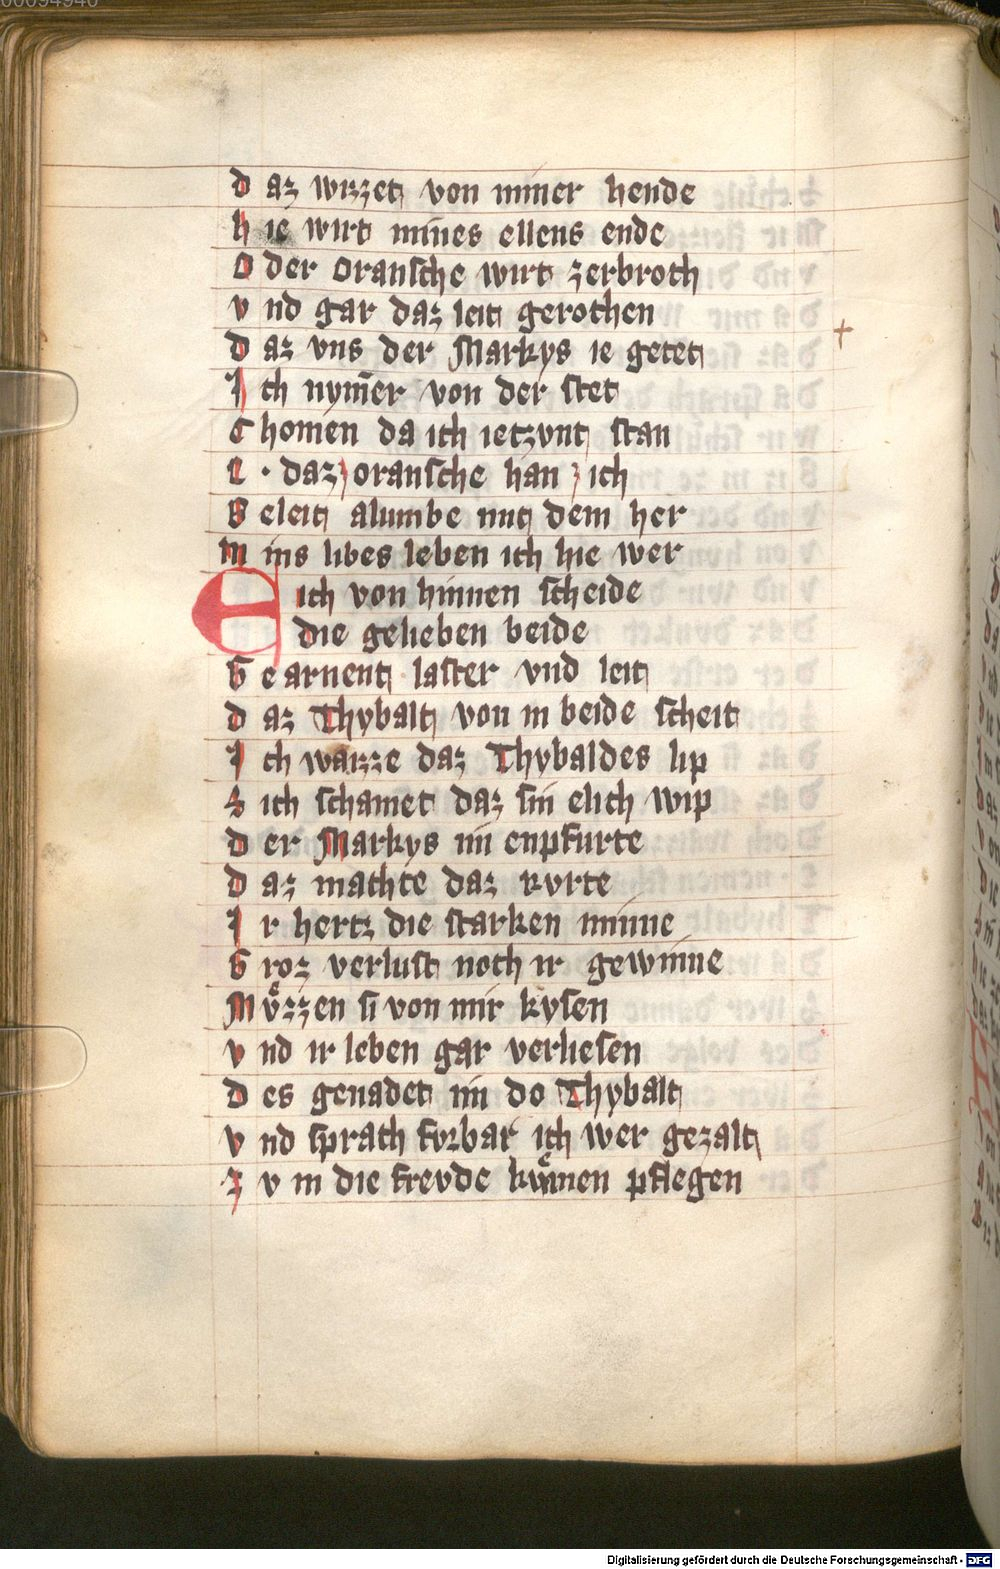 00094946
d az wizzet von miner hende
h ie wirt mines ellens ende
O der Oransche wirt zerbroth
v nd gar daz leit gerothen
d az vns der Markys ie getet
J ch nym̄er von der stet
C homen da ich ietzvnt stan
E · daz oransche han ich
B eleit alumbe mit dem her
M ins libes leben ich hie wer
E ich von hinnen scheide
die gelieben beide
G e arnent laster vnd leit
d az Thybalt von in beide scheit
J ch waizze daz Thybaldes lip
S ich schamet daz sin elich wip
d er Markys im enpfurte
d az machte daz rvrte
J r hertz die starken minne
G roz verlust noch ir gewinne
Mvͤzzen si von mir kysen
v nd ir leben gar verliesen
d es genadet im do Thybalt
v nd sprach forbar ich wer gezalt
Z v in die frevde kunnen pflegen
Digitalisierung gefördert durch die Deutsche Forschungsgemeinschaft - DFG